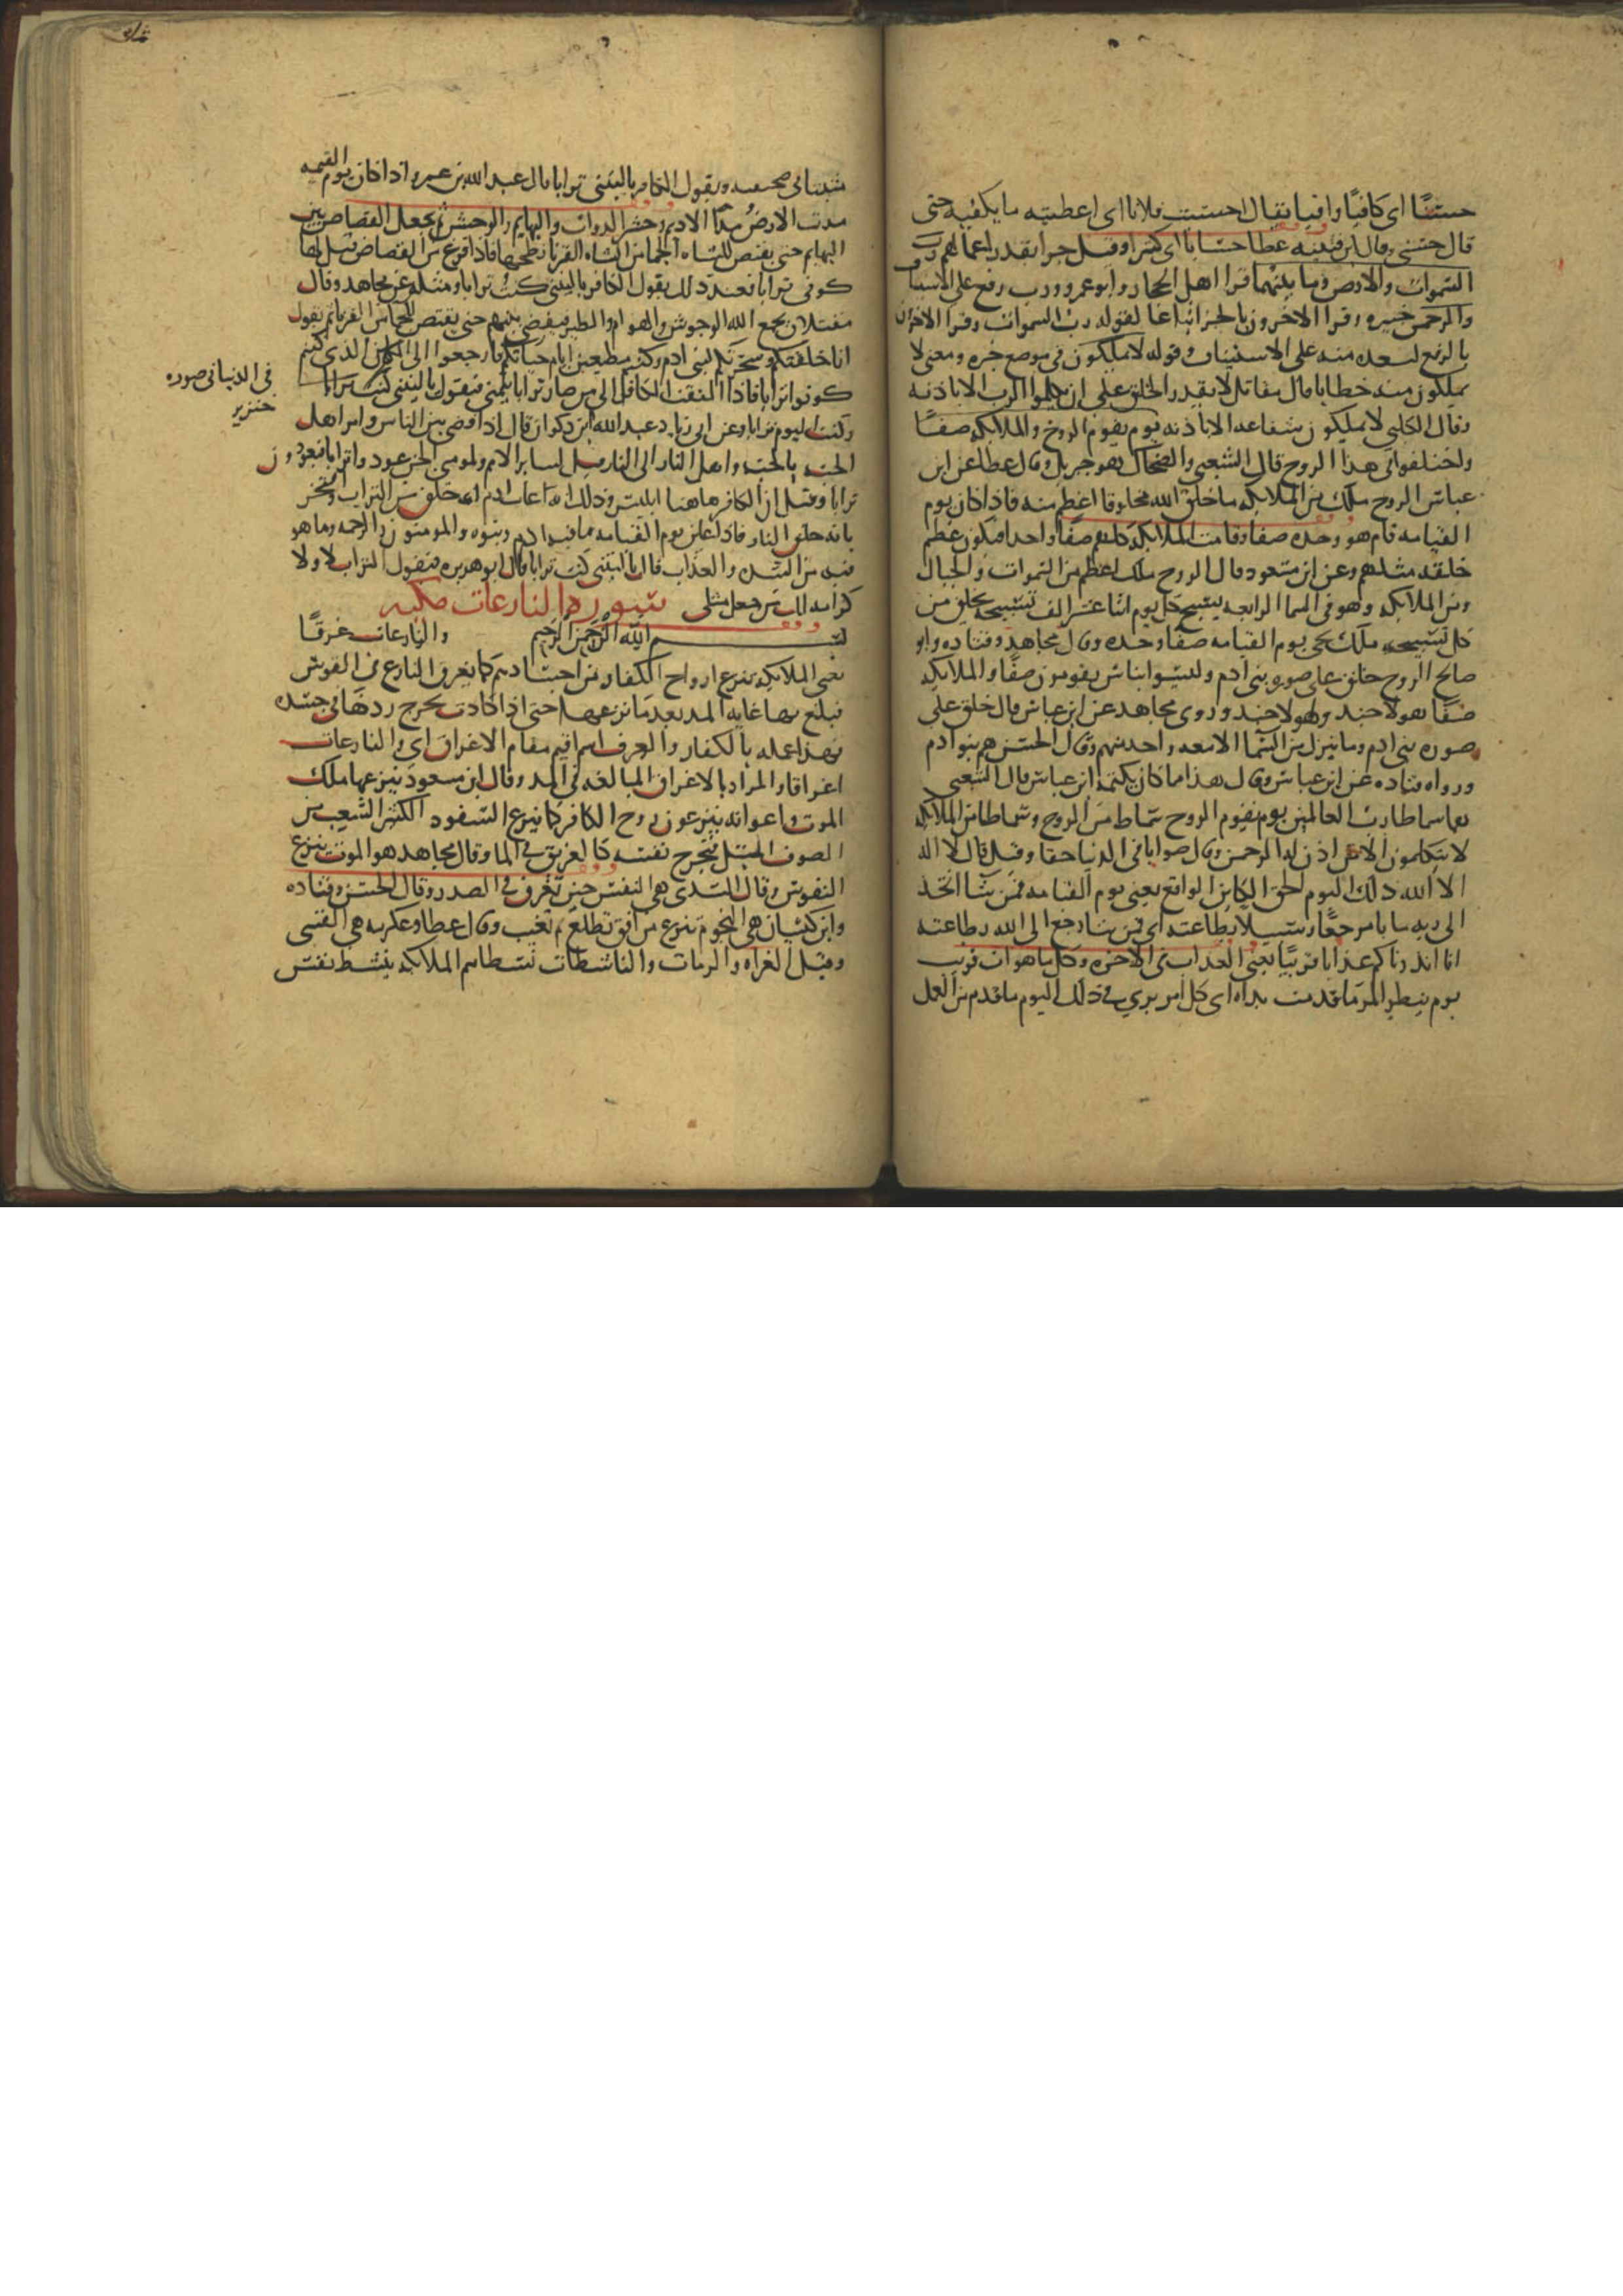 حسنًا اى كافيًا وافيا يقال احسنت فلانا اى اعطيته ما يكفيه حتى
قال حسبى وقال ابن قتيبه عطا حسابا اى كثيرا وقيل جزا بقدر اعمالهم رب
السموات والارض وما بينهما قرا اهل الحجاز وابو عمرو رب رفع على الاستيناف
والرحمن خبره وقرا الاخرون بالجر اتباعا لقوله من ربك رب السموات وقرا الاخرون
بالرفع لبعده منه على الاستيناف وقوله لا يملكون فى موضع خبره ومعنى لا
يملكون منه خطابا قال مقاتل لا يقدر الخلق على ان يكلموا الرب الا باذنه
وقال الكلبى لا يملكون شفاعه الا باذنه يوم يقوم الروح والملايكه صفًا
واختلفوا فى هذا الروح قال الشعبى والضحاك هو جبريل وقال عطا عن ابن
عباس الروح ملك من الملايكه ما خلق الله مخلوقا اعظم منه فاذا كان يوم
القيامه قام هو وحده صفا وقامت الملايكه كلهم صفًا واحدا فيكون عظم
خلقه مثلهم وعن ابن مسعود قال الروح ملك اعظم من السموات والجبال
ومن الملايكه وهو فى السما الرابعه يسبح كل يوم اثنا عشر الف تسبيحه يخلق من
كل تسبيحه ملك يجى يوم القيامه صفا وحده وقال مجاهد وقتاده وابو
صالح الروح خلق على صوره بنى ادم وليسوا بناس يقومون صفًا والملايكه
صفًا هولا جند وهولا جند وروى مجاهد عن ابن عباس قال خلق على
صوره بنى ادم وما ينزل من السما ملك الا معه واحد منهم وقال الحسن هم بنوا ادم
ورواه قتاده عن ابن عباس وقال هذا ما كان يكتمه ابن عباس قال الشعبى
هما سماطا رب العالمين يوم يقوم الروح سماط من الروح وسماط من الملايكه
لا يتكلمون الا من اذن له الرحمن وقال صوابا فى الدنيا حقا وقيل قال لا اله
الا الله ذلك اليوم الحق الكاين الواقع يعنى يوم القيامه فمن شا اتخذ
الى ربه مابا مرجعًا وسبيلا بطاعته اى فمن شا رجع الى الله بطاعته
انا انذرناكم عذابا قريبًا يعنى العذاب فى الاخره وكل ما هو ات قريب
يوم ينظر المر ما قدمت يداه اى كل امر يرى فى ذلك اليوم ما قدم من العمل
مثبتا فى صحيفته ويقول الكافر ياليتنى ترابا قال عبد الله بن عمرو اذا كان يوم القيمه
مدت الارض مد الاديم وحشر الدواب والبهايم والوحش ثم يجعل القصاص بين
البهايم حتى يقتص للشاه الجما من الشاه القرنا نطحتها فاذا فرغ من القصاص قيل لها
كونى ترابا فعند ذلك يقول الكافر ياليتنى كنت ترابا ومثله عن مجاهد وقال
مقاتل ان يجمع الله الوحوش والهوام والطير فيقضى بينهم حتى يقتص للجما من القرنا ثم يقول
انا خلقتكم وسخرتكم لبنى ادم وكنتم مطيعين ايام حياتكم فارجعوا الى الذى كنتم
كونوا ترابا فاذا التفت الكافر الى من صار ترابا يتمنى فيقول ياليتنى كنت
فى الدنيا فى صوره
خنزير
وكنت اليوم ترابا وعن ابى زياد عبد الله ابن ذكوان قال اذا قضى بين الناس وامر اهل
الجنه بالجنه واهل النار الى النار قيل لساير الامم ولمومنى الجن عودوا ترابا فيعودون
ترابا وقيل ان الكافر هاهنا ابليس وذلك انه عاب ادم انه خلق من التراب وافتخر
بانه خلق من النار فاذا عاين يوم القيامه ما فيه ادم وبنوه والمومنون من الرحمه وما هو
فيه من الشده والعذاب قال ياليتنى كنت ترابا قال ابو هريره فيقول التراب لا ولا
كرامه لك من جعلك مثلى سوره النازعات مكيه
بسم الله الرحمن الرحيم والنازعات غرقًا
يعنى الملايكه تنزع ارواح الكفار من اجسادهم كما يغرق النازع فى القوس
فيبلغ بها غايه المد بعد ما نزعها حتى اذا كادت تخرج ردها فى جسده
فهذا عمله بالكفار والغرق اسم اقيم مقام الاغراق اى والنازعات
اغراقا والمراد بالاغراق المبالغه فى المد وقال ابن مسعود ينزعها ملك
الموت واعوانه ينزعون روح الكافر كما ينزع السفود الكثير الشعب من
الصوف المبتل فتخرج نفسه كالغريق فى الما وقال مجاهد هو الموت ينزع
النفوس وقال السدى هى النفس حين تغرق فى الصدر وقال الحسن وقتاده
وابن كيسان هى النجوم تنزع من افق تطلع ثم تغيب وقال عطا وعكرمه هى القسى
وقيل الغزاه والرماه والناشطات نشطا هم الملايكه ينشط نفس